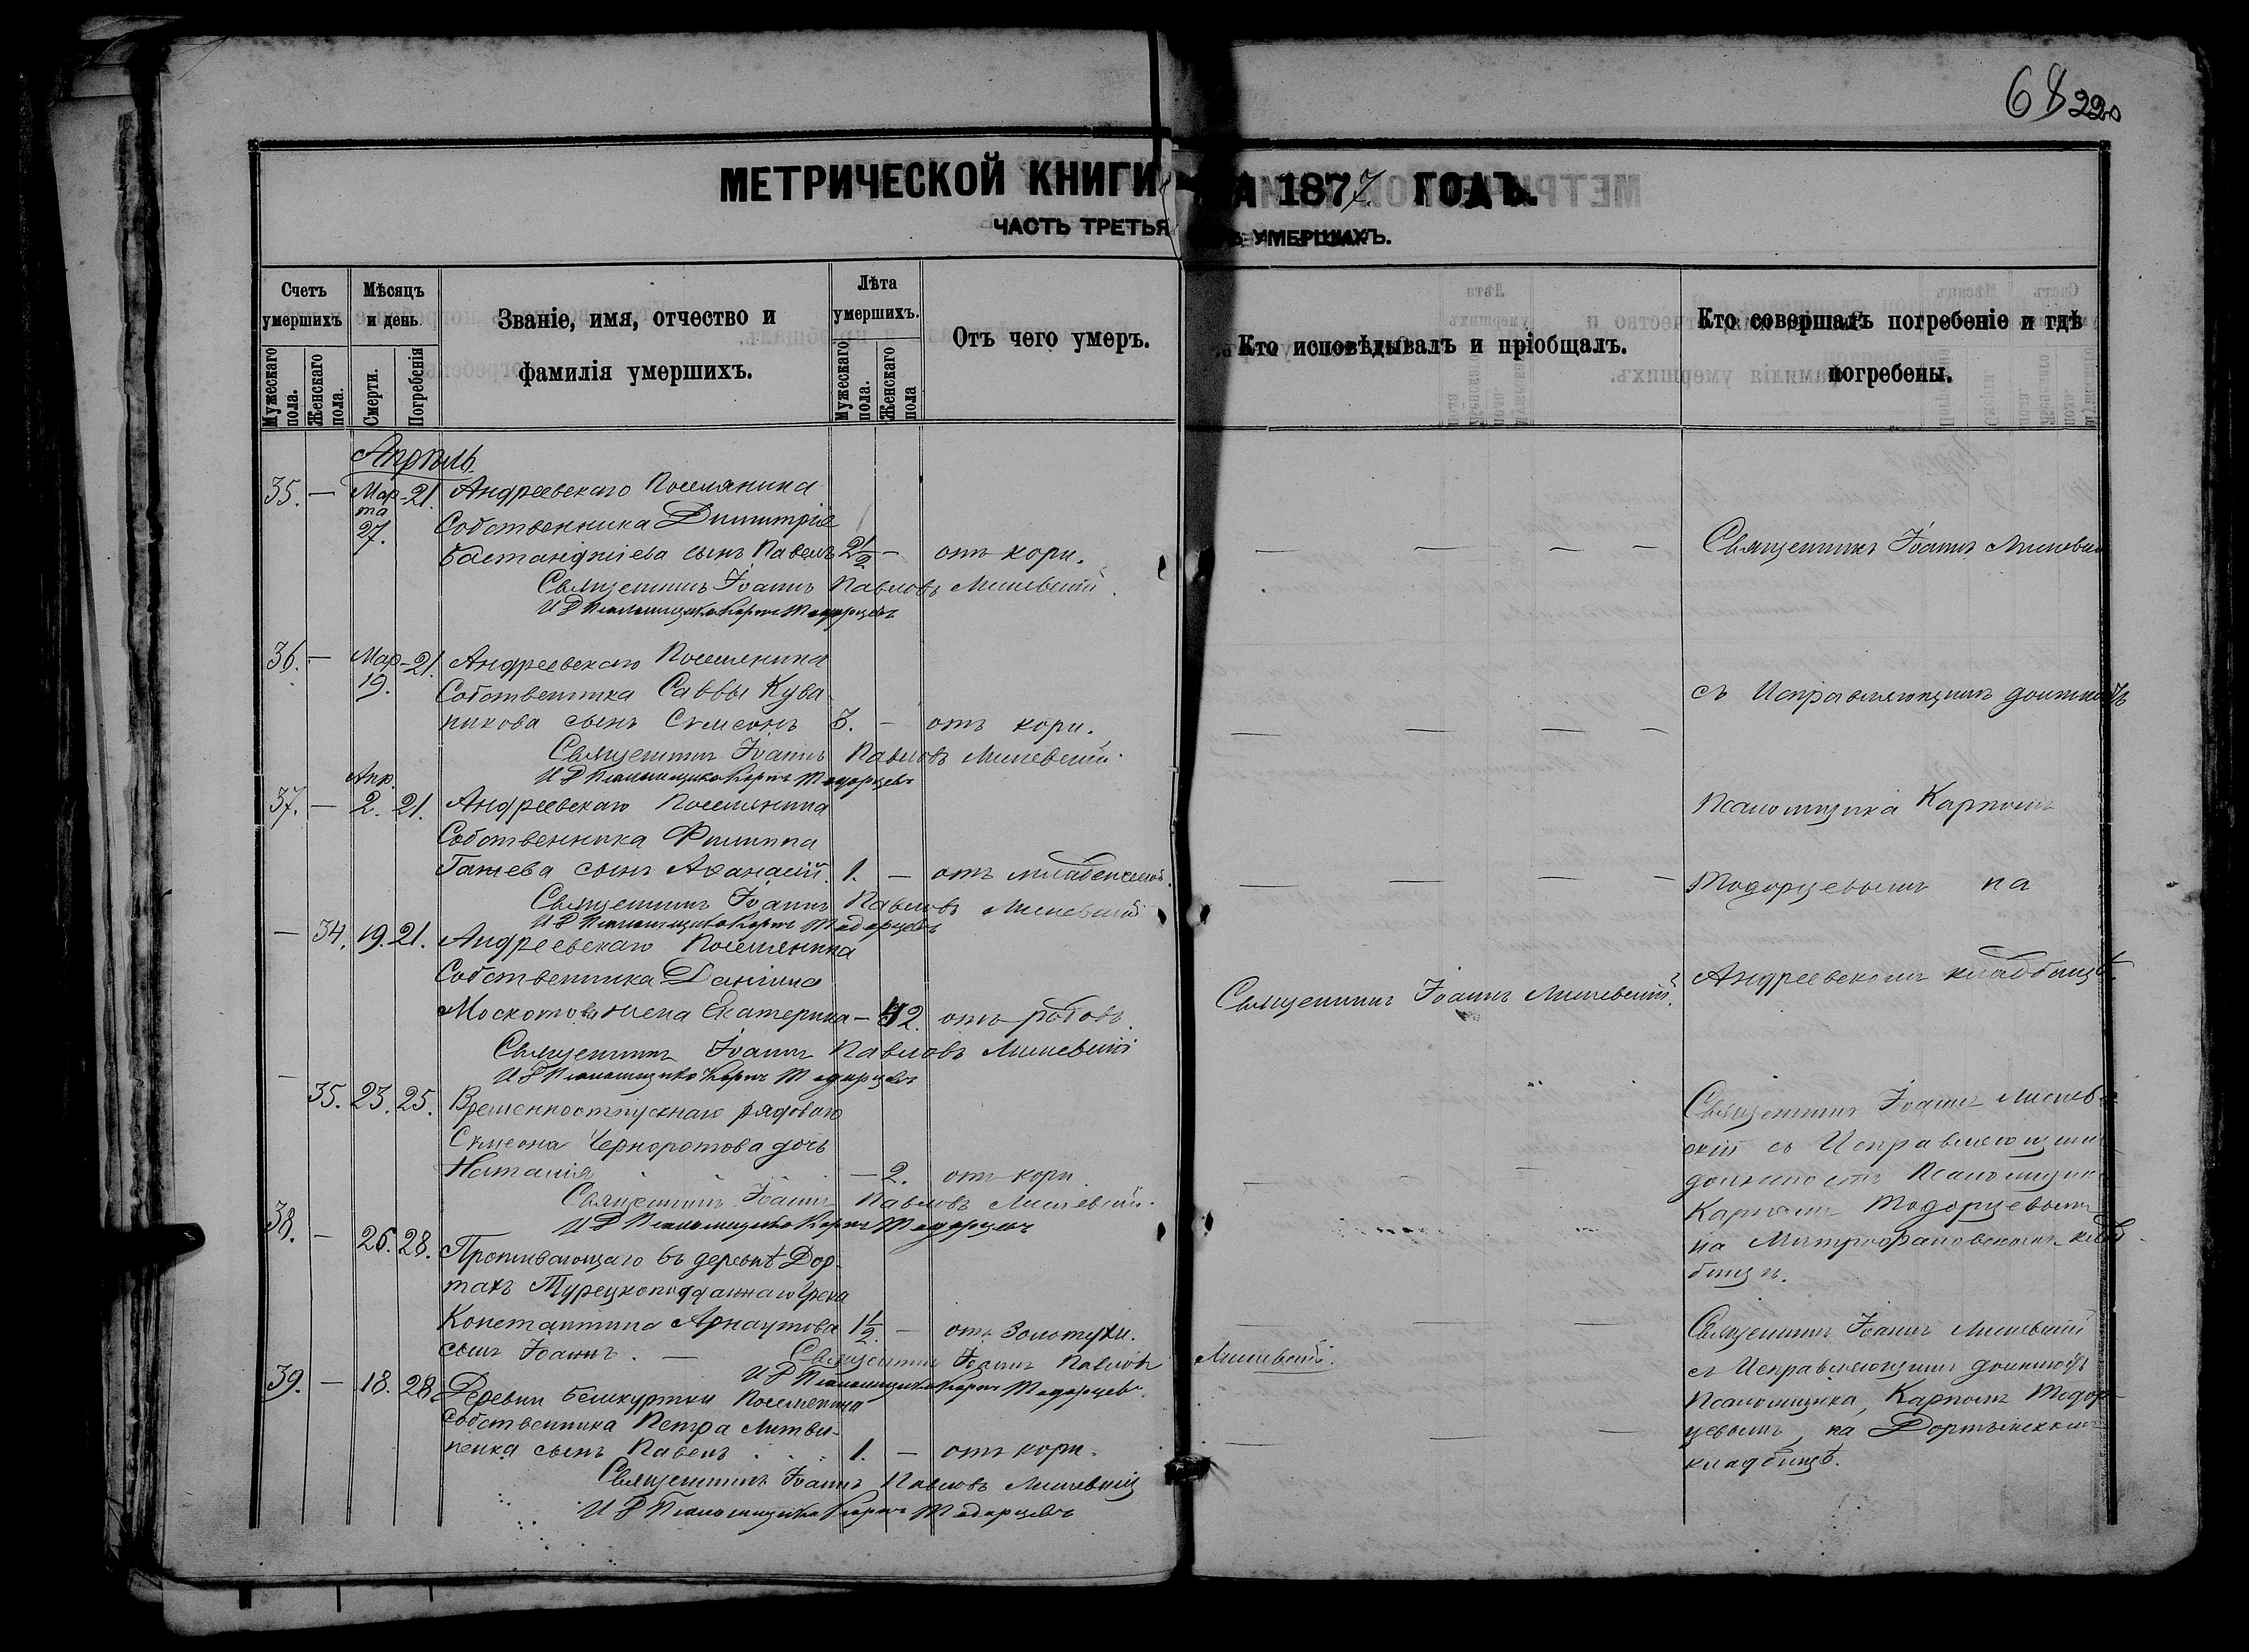 68 220
МЕТРИЧЕСКОЙ КНИГИ НА 1877 ГОДЪ.
ЧАСТЬ ТРЕТЬЯ УМЕРШИХЪ.
Счетъ умершихъ
Мужескаго пола.
Женскаго пола.
Мѣсяцъ и день.
Смерти.
Погребенія
Званіе, имя, отчество и
фамилія умершихъ.
Лѣта умершихъ.
Мужескаго пола.
Женскаго пола
Отъ чего умеръ.
Кто исповѣдывалъ и пріобщалъ.
Кто совершалъ погребеніе и гдѣ
погребены.
Апрѣль
35. — Марта 27. 21. Андреевскаго Поселянина
Собственника Димитрія
Бастанджіева сынъ Павелъ 2 1/2 — отъ кори.
Священникъ Іоаннъ Павловъ
И Д Псаломщика Карпъ Тодорцевъ
36. — Мар 19. 21. Андреевскаго Поселянина
Собственника Саввы Кува
никова сынъ Сѵмеонъ 3. — отъ кори.
Священникъ Іоаннъ Павловъ
И Д Псаломщика Карпъ Тодорцевъ
37. — Апр. 2. 21. Андреевскаго Поселянина
Собственника Филиппа
сынъ Аѳанасій. 1. — отъ младенческой.
Священникъ Іоаннъ Павловъ
И Д Псаломщика Карпъ Тодорцевъ
— 34. 19. 21. Андреевскаго Поселянина
Собственника Даніила
Москотова жена Екатерина — 42. отъ родовъ.
Священникъ Іоаннъ Павловъ
И Д Псаломщика Карпъ Тодорцевъ
— 35. 23. 25. Временноотпускнаго рядоваго
Сѵмеона Черноротова дочь
Наталія — 2. отъ кори
Священникъ Іоаннъ Павловъ
И Д Псаломщика Карпъ Тодорцевъ
38. — 26. 28. Проживающаго въ деревнѣ Дор
тахъ Турецкоподданнаго Грека
Константина Арнаутова 1 1/2. — отъ Золотухи.
сынъ Іоаннъ. — Священникъ Іоаннъ Павловъ
И Д Псаломщика Карпъ Тодорцевъ
39. — 18. 28. Деревни Бешкуртки Поселянина
Собственника Петра Литви-
ненка сынъ Павелъ 1. — отъ кори.
Священникъ Іоаннъ Павловъ
И Д Псаломщика Карпъ Тодорцевъ
Священникъ Іоаннъ
Священникъ Іоаннъ
съ Исправляющимъ должность
Псаломщика Карпомъ
Тодорцевымъ на
Андреевскомъ кладбищѣ.
Священникъ Іоаннъ
скій съ Исправляющимъ
должность Псаломщика
Карпомъ Тодорцевымъ
на Митрофановскомъ клад
бищѣ.
Священникъ Іоаннъ
съ Исправляющимъ должность
Псаломщика, Карпомъ Тодор-
цевымъ, на Дортынскомъ
кладбищѣ.